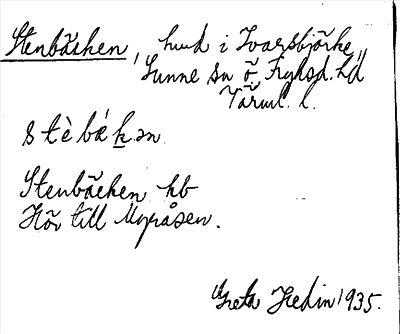 Stenbäcken, hmd i Ivarsbjörke,
Sunne sn Ö. Fryksd. hd
Värml. l.
stè bá k̠ən
Stenbäcken hb
Hör till Myråsen.
Greta Hedin 1935.